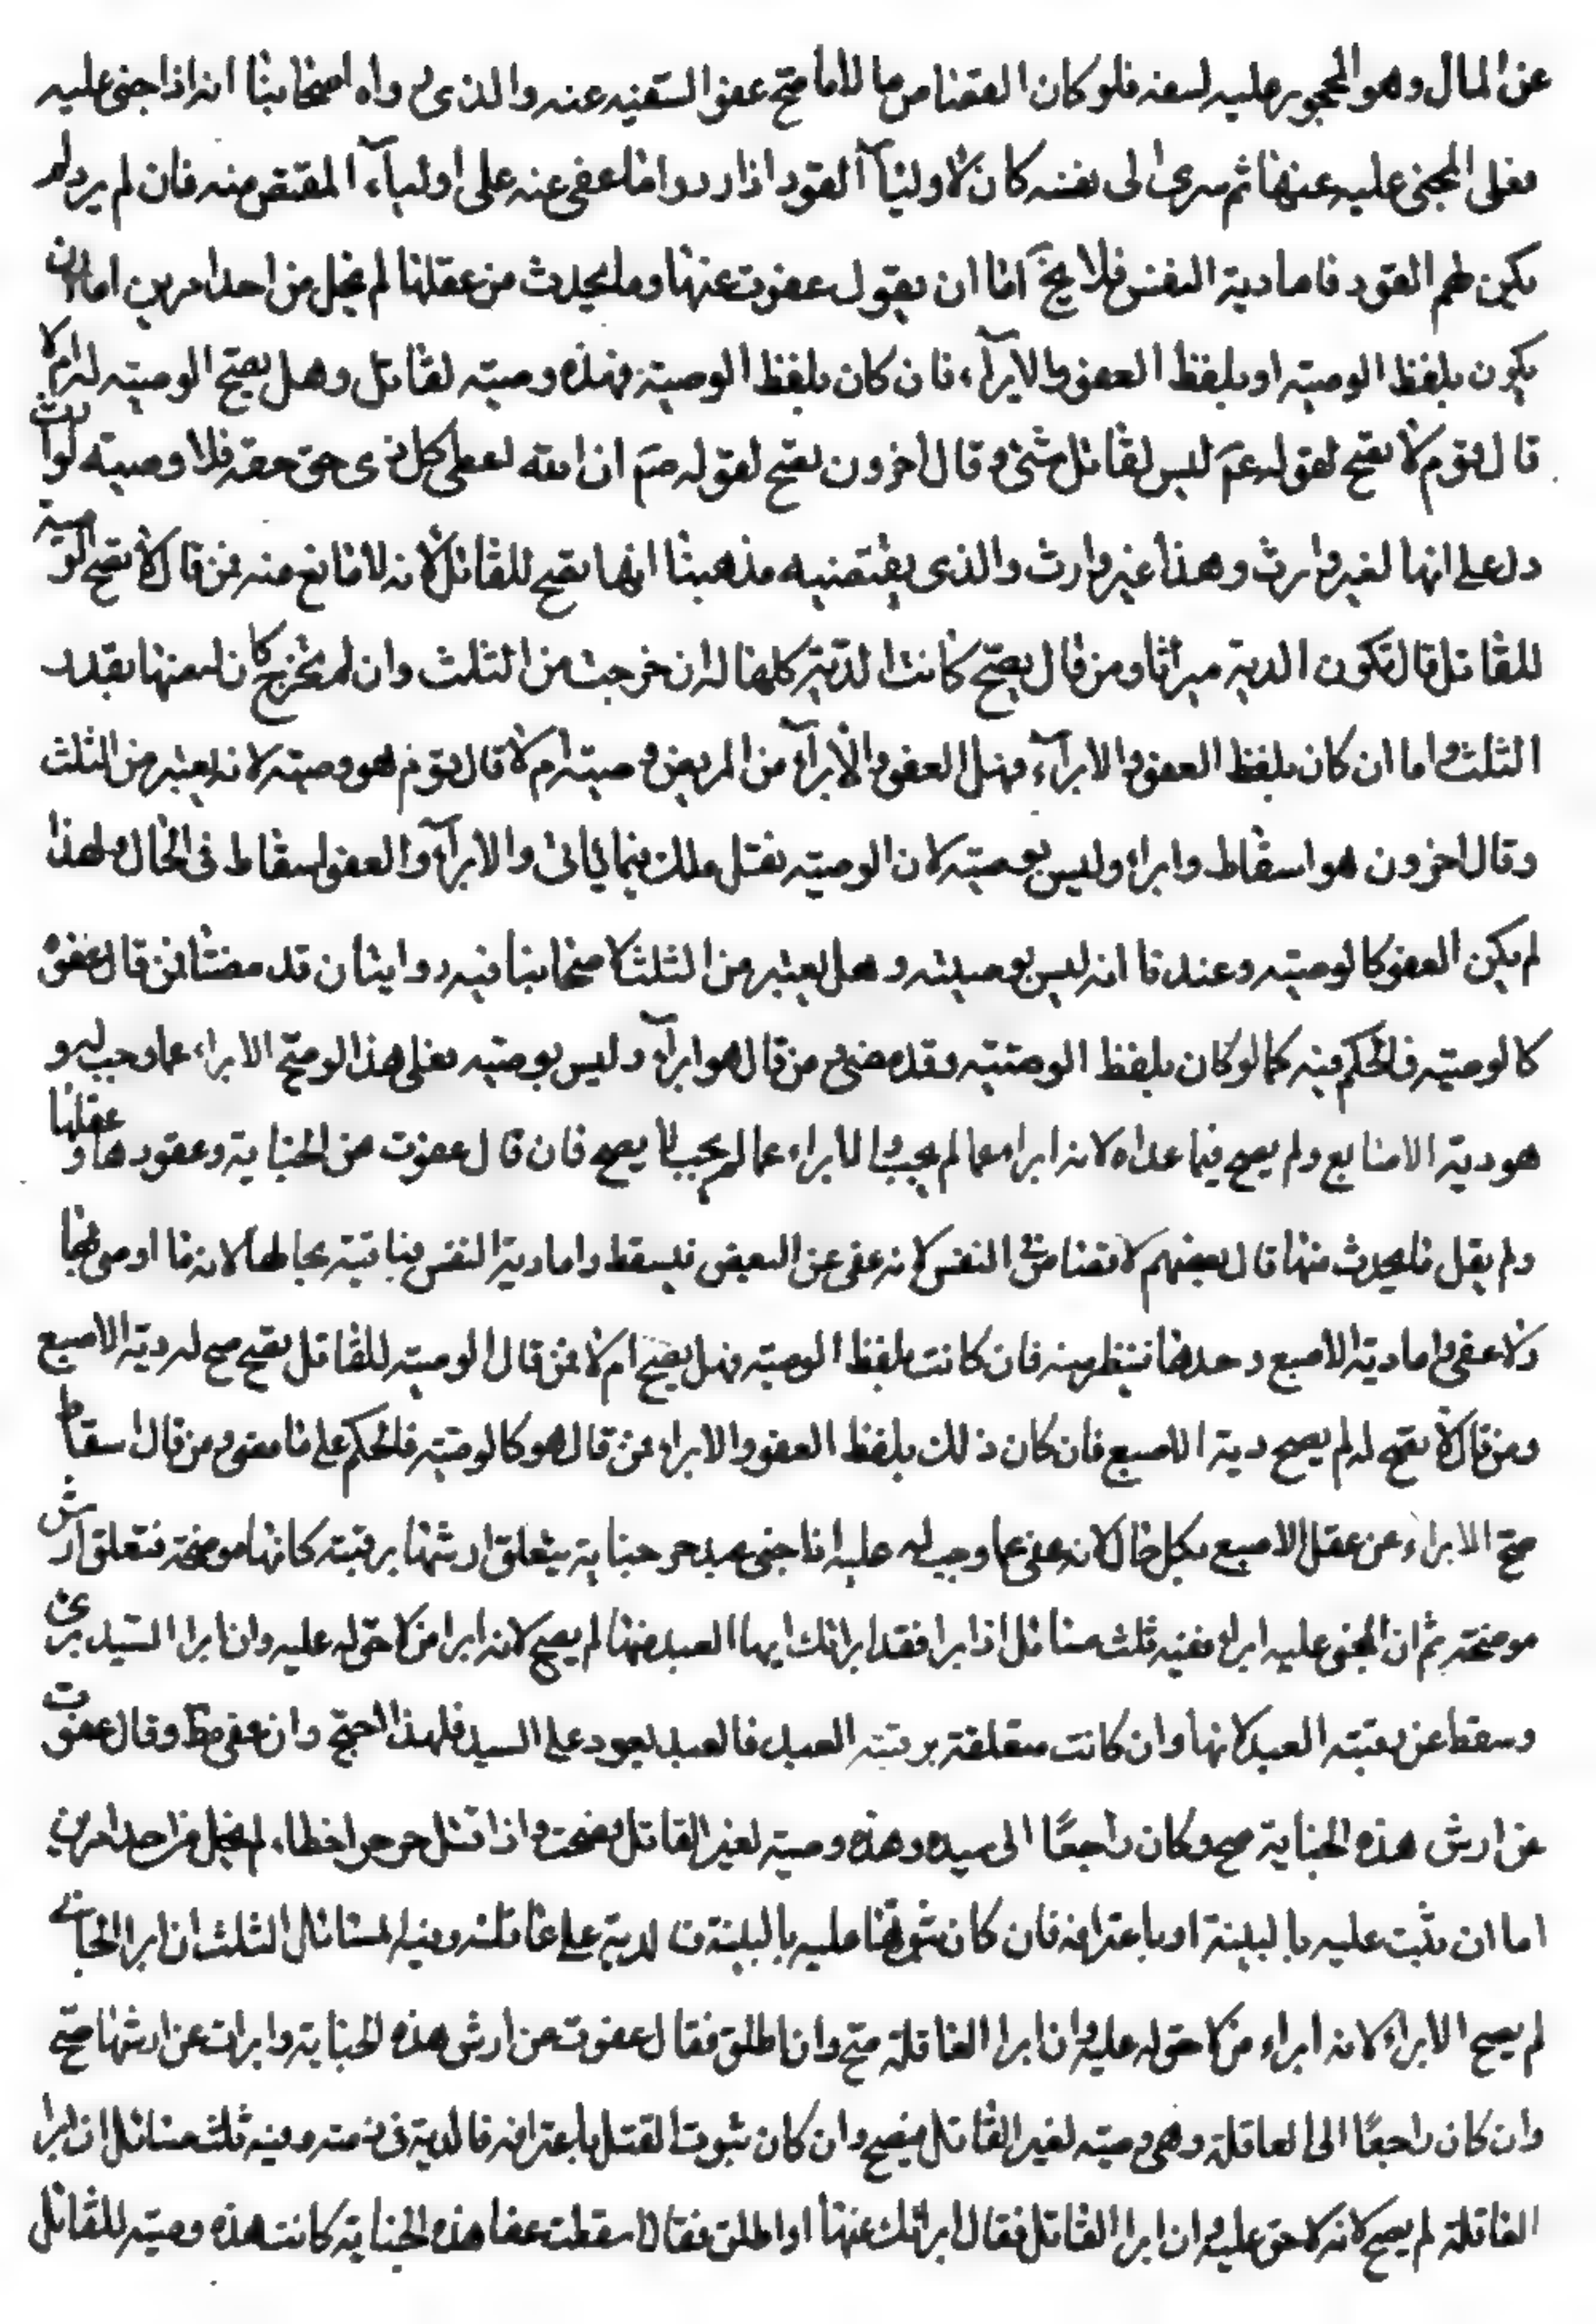 عن المال وهو المحجور عليه لسفه فلو كان القصاص مالا لما صح عفو السفيه عنه والذى رواه اصحابنا انه اذا جنى عليه
فعفى المجنى عليه عنها ثم سرى الى نفسه كان لاوليآء القود اذا ردوا ما عفى عنه على اوليآء المقتص منه فان لم يرد لم
يكن لهم القود فاما دية النفس فلا يخ اما ان يقول عفوت عنها وما يحدث من عقلها لم يخل من احد امرين اما ان
يكون بلفظ الوصية او بلفظ العفو والابرآء، فان كان بلفظ الوصية فهذه وصية لقاتل وهل يصح الوصية له ام لا
قال قوم لا تصح لقوله عم ليس لقاتل شئ وقال اخرون تصح لقوله صم ان الله اعطى كل ذى حق حقه فلا وصية لوارث
دل على انها لغير وارث وهذا غير وارث والذى يقتضيه مذهبنا انها تصح للقاتل لانه لا مانع منه فمن قال لا تصح الوصية
للقاتل قال تكون الدية ميراثا ومن قال يصح كانت الدية كلها له ان خرجت من الثلث وان لم تخرج كان له منها بقدر
الثلث واما ان كان بلفظ العفو والابرآء فهل العفو والابرآء من المريض وصية ام لا قال قوم هو وصية لانه يعتبر من الثلث
وقال اخرون هو اسقاط وابراء وليس بوصية لان الوصية نقل ملك فيما ياتى والابرآء والعفو اسقاط فى الحال ولهذا
لم يكن العفو كالوصية وعندنا انه ليس بوصية وهل يعتبر من الثلث لاصحابنا فيه روايتان قد مضتا فمن قال عفوه
كالوصية فالحكم فيه كما لو كان بلفظ الوصية وقد مضى ومن قال هو ابرآء وليس بوصية فعلى هذا لو صح الابراء عما وجب له و
هو دية الاصابع ولم يصح فيما عداه لانه ابراء عما لم يجب والابراء عما لم يجب لا يصح فان قال عفوت عن الجناية وعقودها وعقلها
ولم يقل ما يحدث منها قال بعضهم لا قصاص فى النفس لانه عفى عن البعض فيسقط واما دية النفس فباقية بحالها لانه ما اوصى بها
ولا عفى واما دية الاصبع وحدها فينظر فيه فان كانت بلفظ الوصية فهل يصح ام لا فمن قال الوصية للقاتل تصح صح له دية الاصبع
ومن قال لا تصح له لم يصح دية الاصبع فان كان ذلك بلفظ العفو والابراء فمن قال هو كالوصية فالحكم على ما مضى ومن قال اسقاط
صح الابراء عن عقل الاصبع بكل حال لانه عفى عما وجب له عليه اذا جنى عبد حر جناية يتعلق ارشها برقبته كانها موضحة فتعلق ارش
موضحة ثم ان المجنى عليه ابراء ففيه ثلث مسائل اذا ابرا فقد ابراتك ايها العبد منها لم يصح لانه ابرا من لا حق له عليه وان ابرا السيد برئ
وسقط عن رقبته العبد لانها وان كانت متعلقة برقبته العبد فالعبد يعود على السيد فلهذا صح وان عفى مط وقال عفوت
عن ارش هذه الجناية صح وكان راجعًا الى سيده وهذه وصية لغير القاتل فصحت واذا قتل حر حرا خطاء، لم يخل من احد امرين
اما ان يثبت عليه بالبينة او باعترافه فان كان ثبوتها عليه بالبينة فالدية على عاقلته وفيه المسائل الثلث ان ابرا الجانى
لم يصح الابراء لانه ابراء من لا حق له عليه وان ابرا العاقلة صح وان اطلق فقال عفوت عن ارش هذه الجناية وابرات عن ارشها صح
وان كان راجعًا الى العاقلة وهى وصية لغير القاتل فيصح وان كان ثبوت القتل باعترافه فالدية فى ذمته وفيه ثلث مسائل ان ابرا
العاقلة لم يصح لانه لا حق عليه وان ابرا القاتل فقال ابراتك عنها او اطلق فقال اسقطت عفا هذه الجناية كانت هذه وصية للقاتل